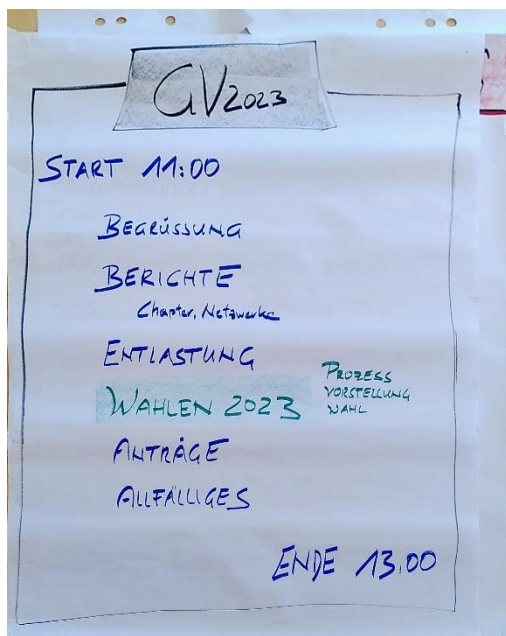 GV 2023
START 11:00
BEGRÜSSUNG
BERICHTE
Chapter, Netzwerke
ENTLASTUNG
WAHLEN 2023
PROZESS
VORSTELLUNG
WAHL
ANTRÄGE
ALLFÄLLIGES
ENDE 13.00